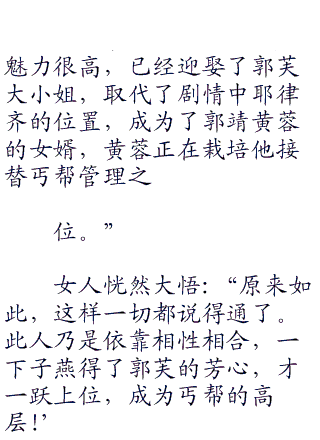 魅力很高，已经迎娶了郭芙
大小姐，取代了剧情中耶律
齐的位置，成为了郭靖黄蓉
的女婿，黄蓉正在栽培他接
替丐帮管理之
位。”
女人恍然大悟：“原来如
此，这样一切都说得通了。
此人乃是依靠相性相合，一
下子燕得了郭芙的芳心，才
一跃上位，成为丐帮的高
层！’